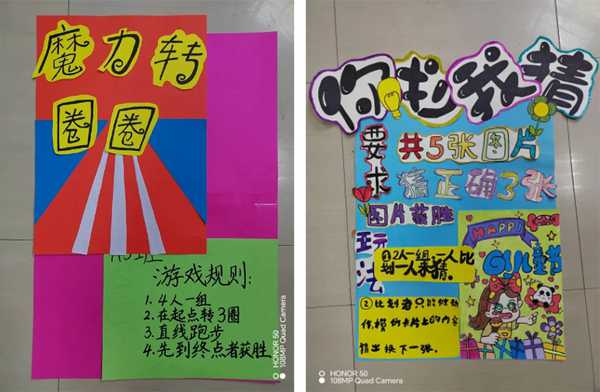 魔力转
圈圈
游戏规则:
1.4人一组
2.在起点转3圈
3.直线跑步
4.先到终点者获胜
HONOR 50
108MP Quad Camera
你比我猜
要求
共5张图片
猜正确3张
图片获胜
玩法
①2人一组,一人比
划一人来猜。
②比划者只能做动
作,
卡片上的内容
猜出换下一张。
HAPPY
61儿童节
HONOR 50
108MP Quad Camera